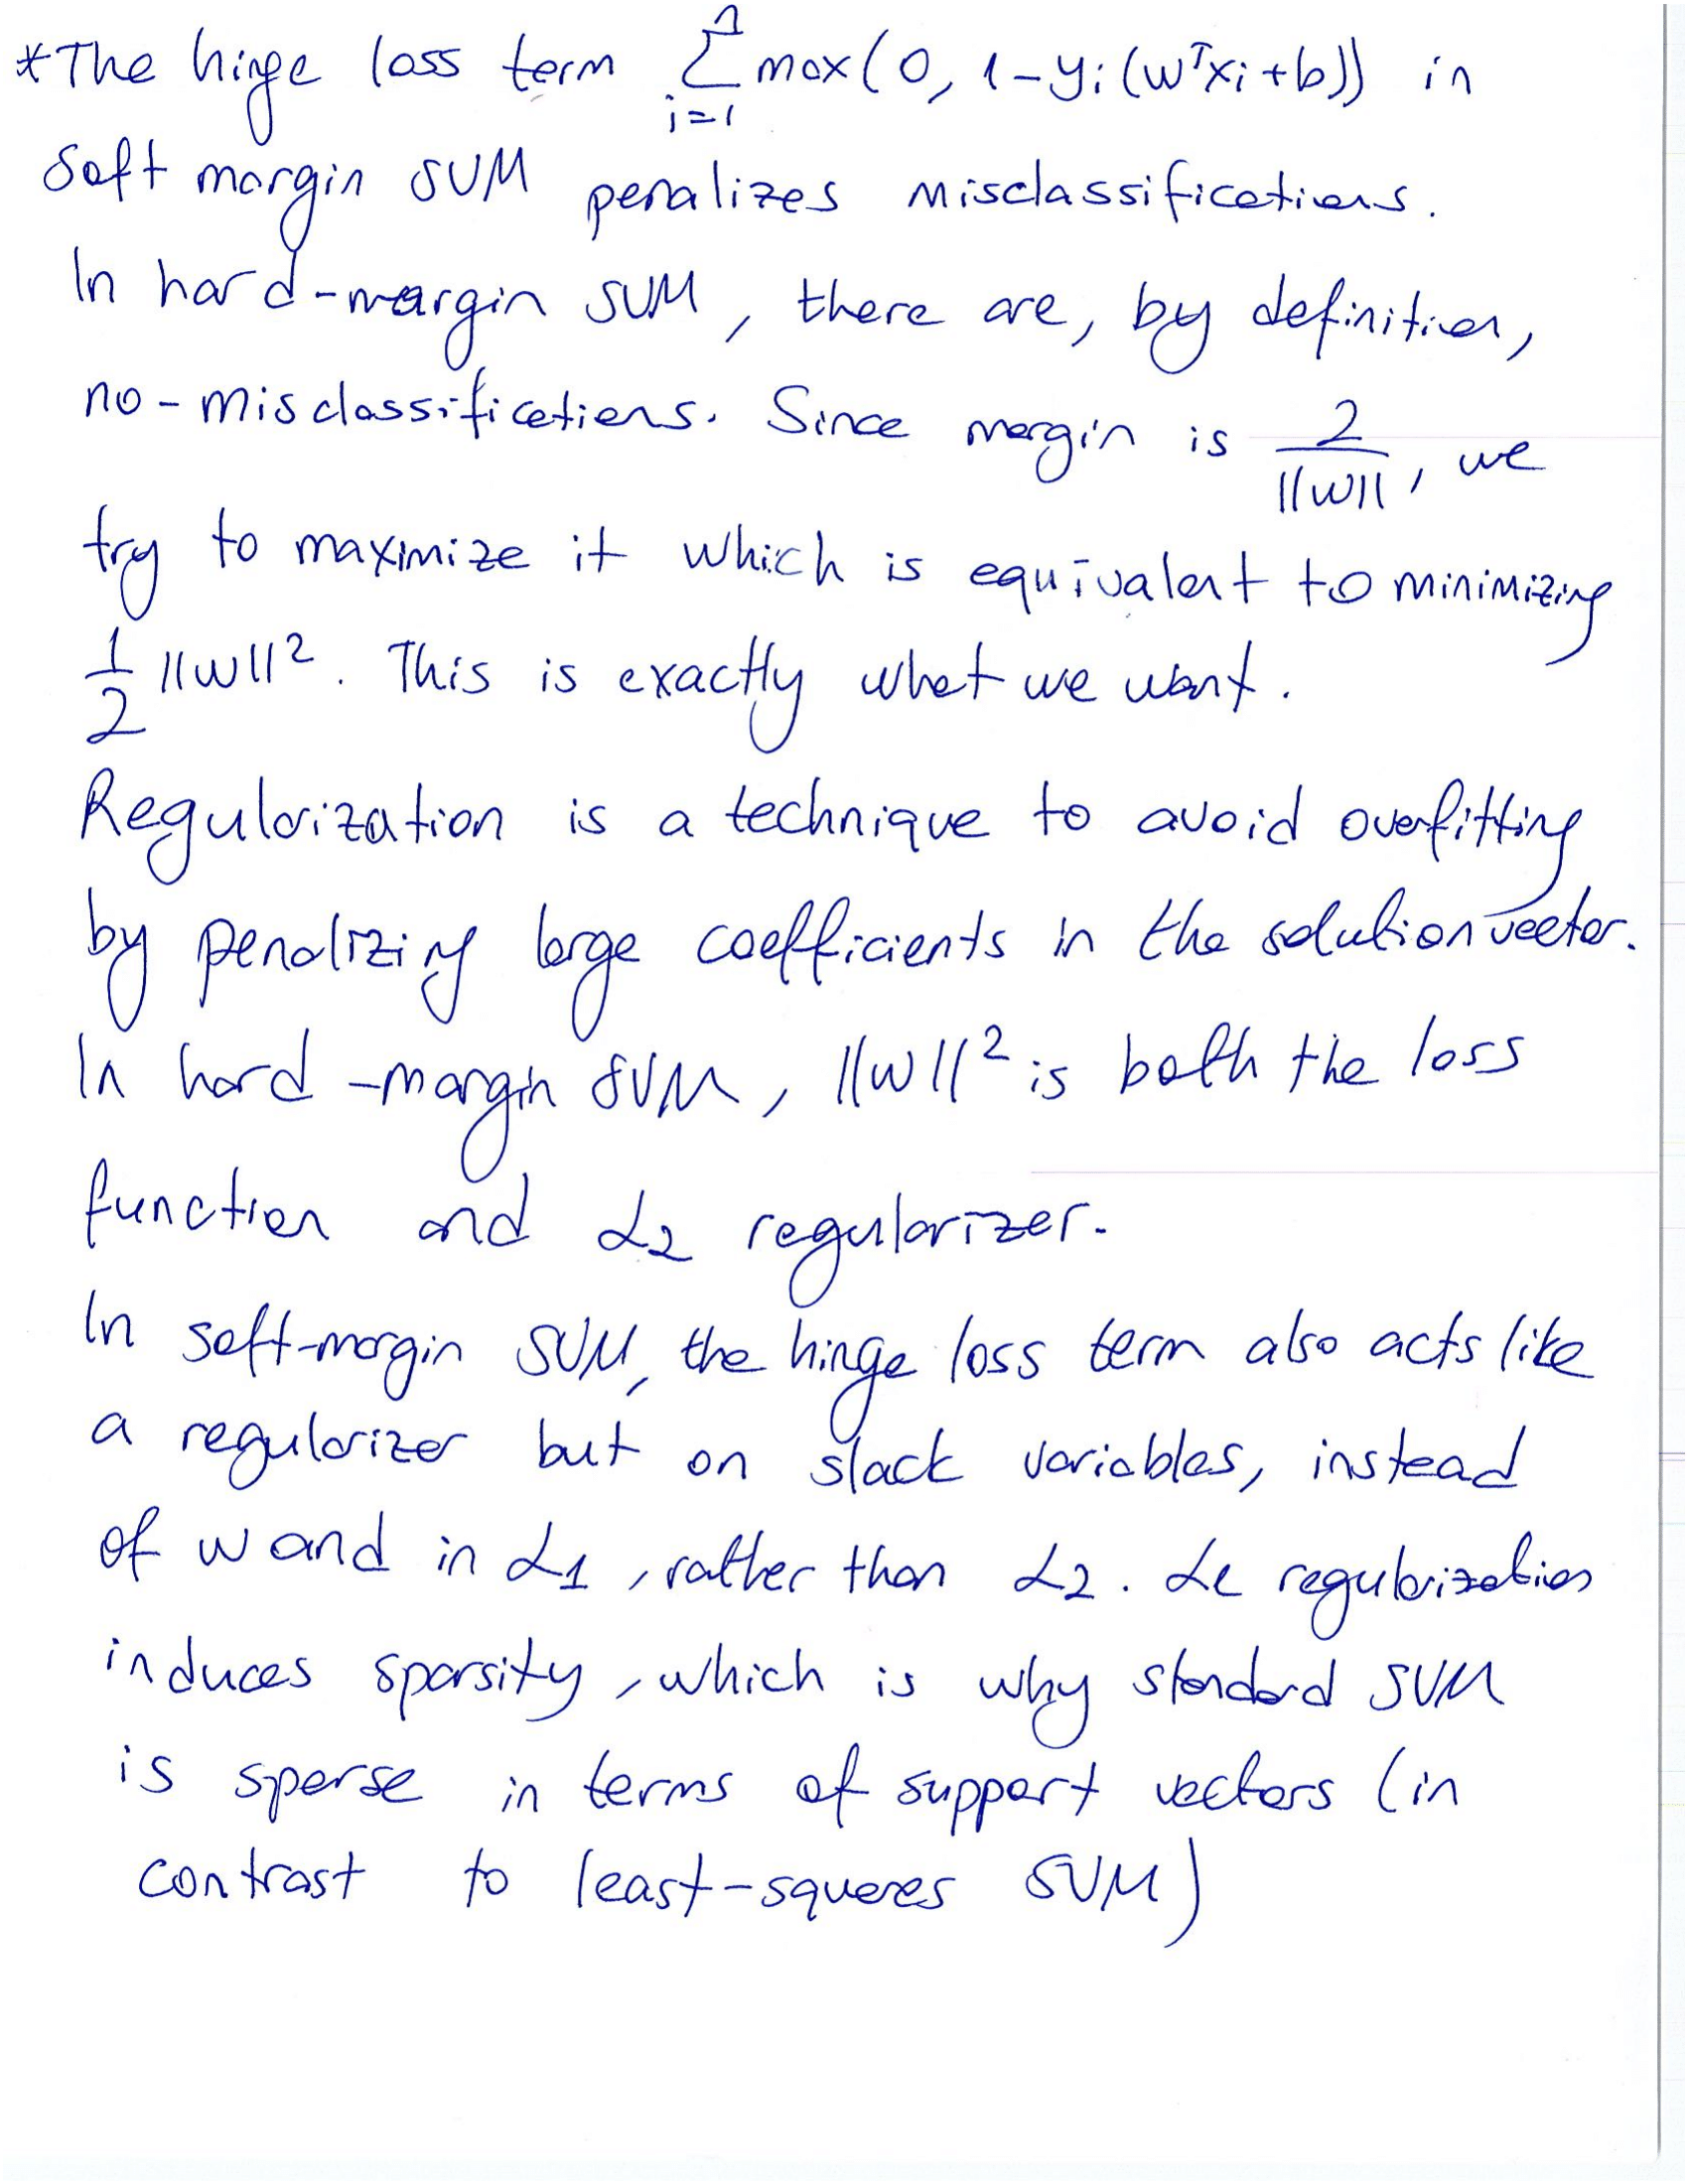 *The hinge loss term ∑_{i=1}^{n} max(0, 1-yi(wᵀxi+b)) in
Soft margin SVM penalizes misclassifications.
In hard-margin SVM, there are, by definition,
no-misclassifications. Since margin is 2/||w||, we
try to maximize it which is equivalent to minimizing
1/2 ||w||². This is exactly what we want.
Regularization is a technique to avoid overfitting
by penalizing large coefficients in the solution vector.
In hard-margin SVM, ||w||² is both the loss
function and L2 regularizer.
In soft-margin SVM, the hinge loss term also acts like
a regularizer but on slack variables, instead
of w and in L1, rather than L2. L1 regularization
induces sparsity, which is why standard SVM
is sparse in terms of support vectors (in
contrast to least-squares SVM)